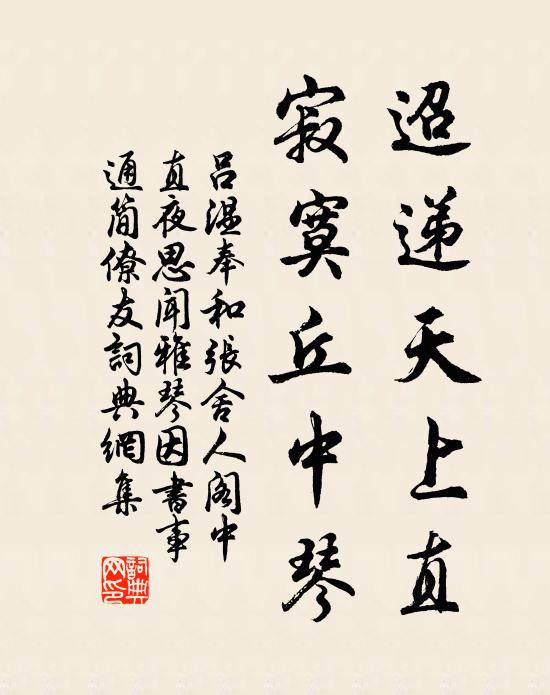 迢递天上直
寂寞丘中琴
吕温奉和張舍人阁中
直夜思闻雅琴因書事
通简僚友詞典網集
詞典
网印